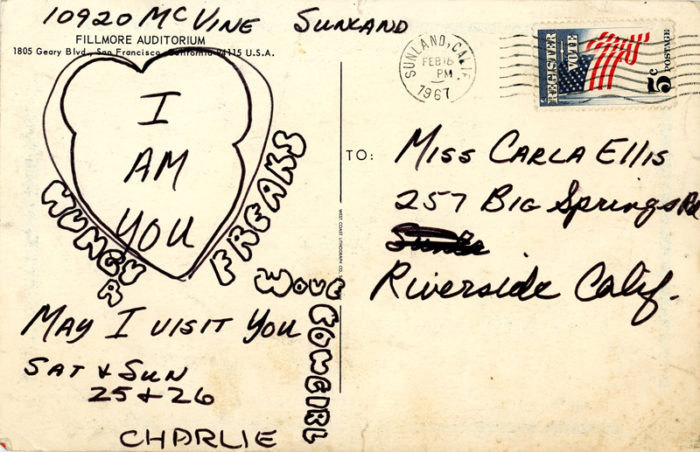 10920 MCVINE SUNLAND
FILLMORE AUDITORIUM
1805 Geary Blvd., San Francisco, California 94115 U.S.A.
I
AM
YOU
HUNGER
FREAKS
LOVE
MAY I VISIT YOU
SAT & SUN
25 & 26
CHARLIE
WEST COAST LITHOGRAPH CO.
SUNLAND, CALIF.
FEB 18
PM
1967
REGISTER
VOTE
5c
POSTAGE
TO: MISS CARLA ELLIS
257 BIG SPRINGS Rd
Riverside Calif.